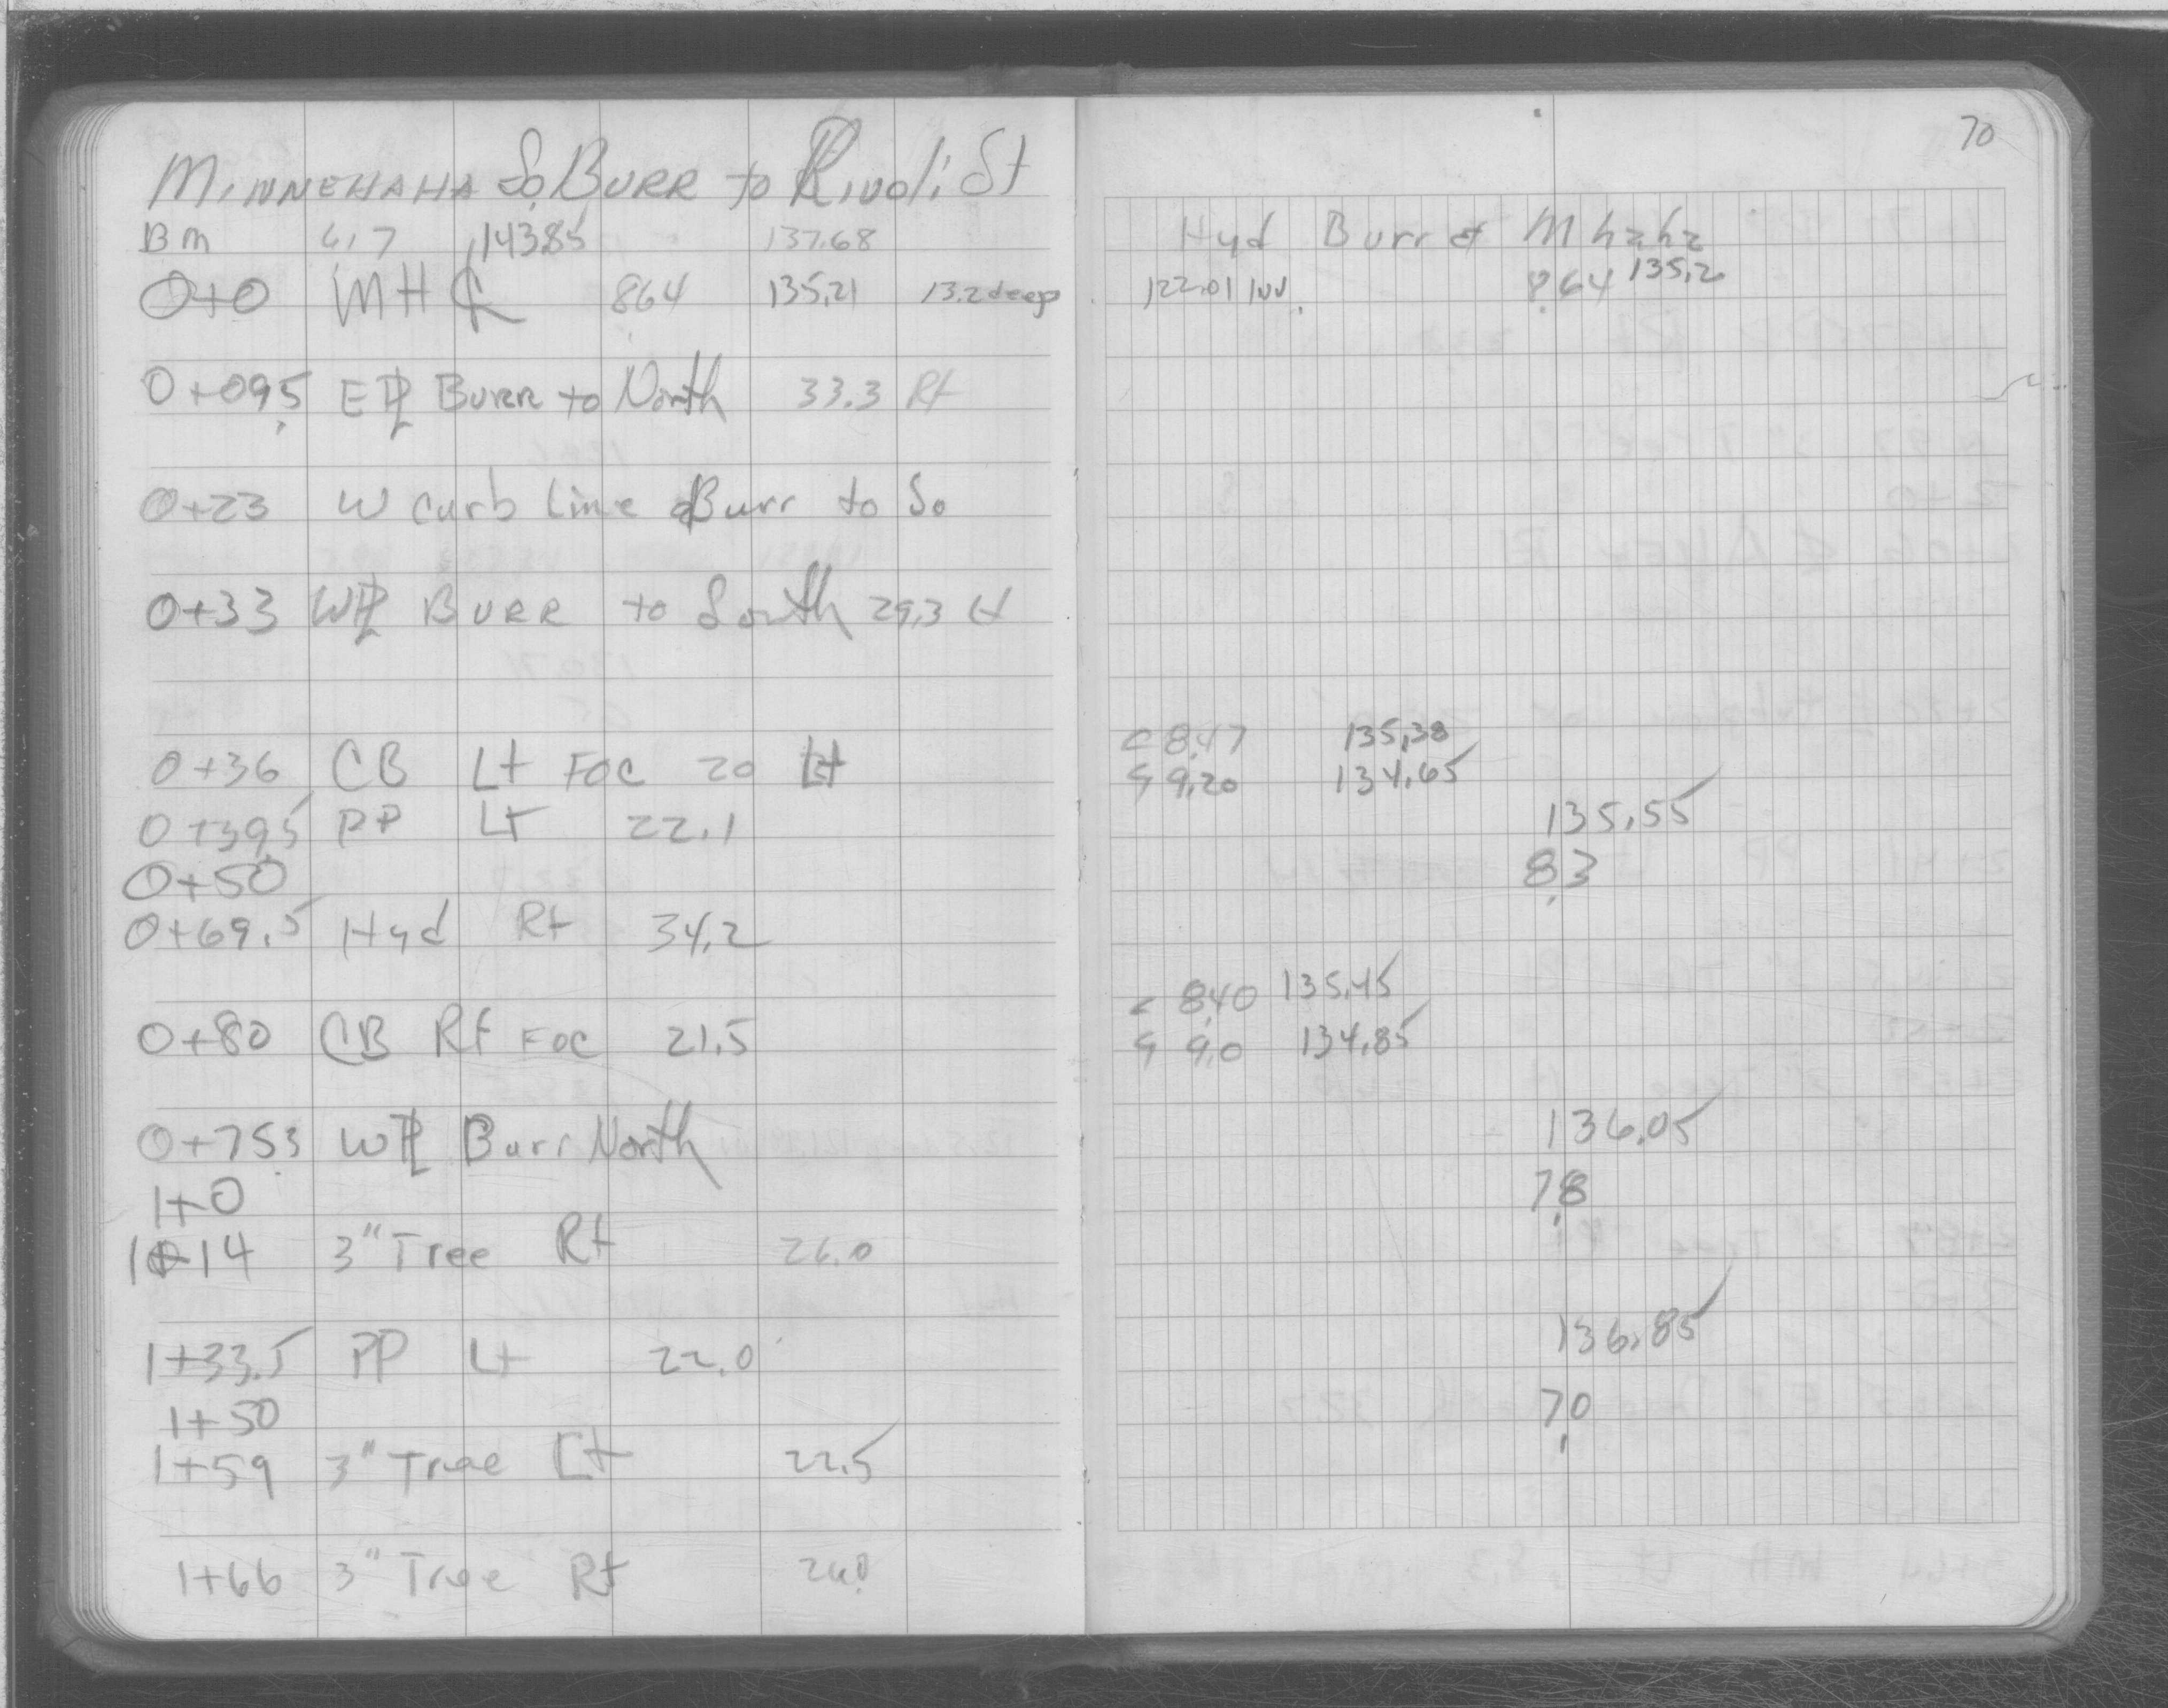 70
MINNEHAHA So. BURR to Rivoli St
BM 6.17 143.85 137.68
0+0 MH ℄ 8.64 135.21 13.2 deep
0+09.5 E ℙL BURR to North 33.3 Rt
0+23 W Curb Line Burr to So
0+33 W ℙL BURR to South 29.3 Lt
0+36 CB Lt FOC 20 Lt
0+39.5 PP Lt 22.1
0+50
0+69.5 Hyd Rt 34.2
0+80 CB Rt FOC 21.5
0+75.3 W ℙL Burr North
1+0
1+14 3" Tree Rt 26.0
1+33.5 PP Lt 22.0
1+50
1+59 3" Tree Lt 22.5
1+66 3" Tree Rt 26.0
Hyd Burr & Mhaha
122.01 Inv. 8.64 135.2
C 8.47 135.38
G 9.20 134.65
135.55
8.3
C 8.40 135.45
G 9.0 134.85
136.05
7.8
136.85
7.0